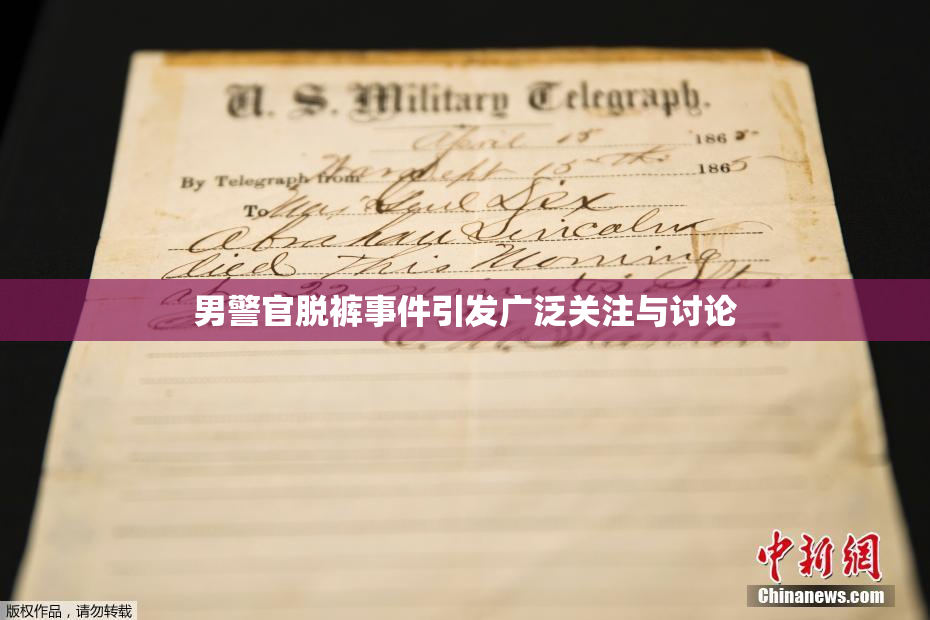 U. S. Military Telegraph.
April 15 1865
By Telegraph from War Dept 15th 1865
To Maj Genl Dix
Abraham Lincoln
died This Morning
at 22 minutes after
男警官脱裤事件引发广泛关注与讨论
中新网
Chinanews.com
版权作品，请勿转载